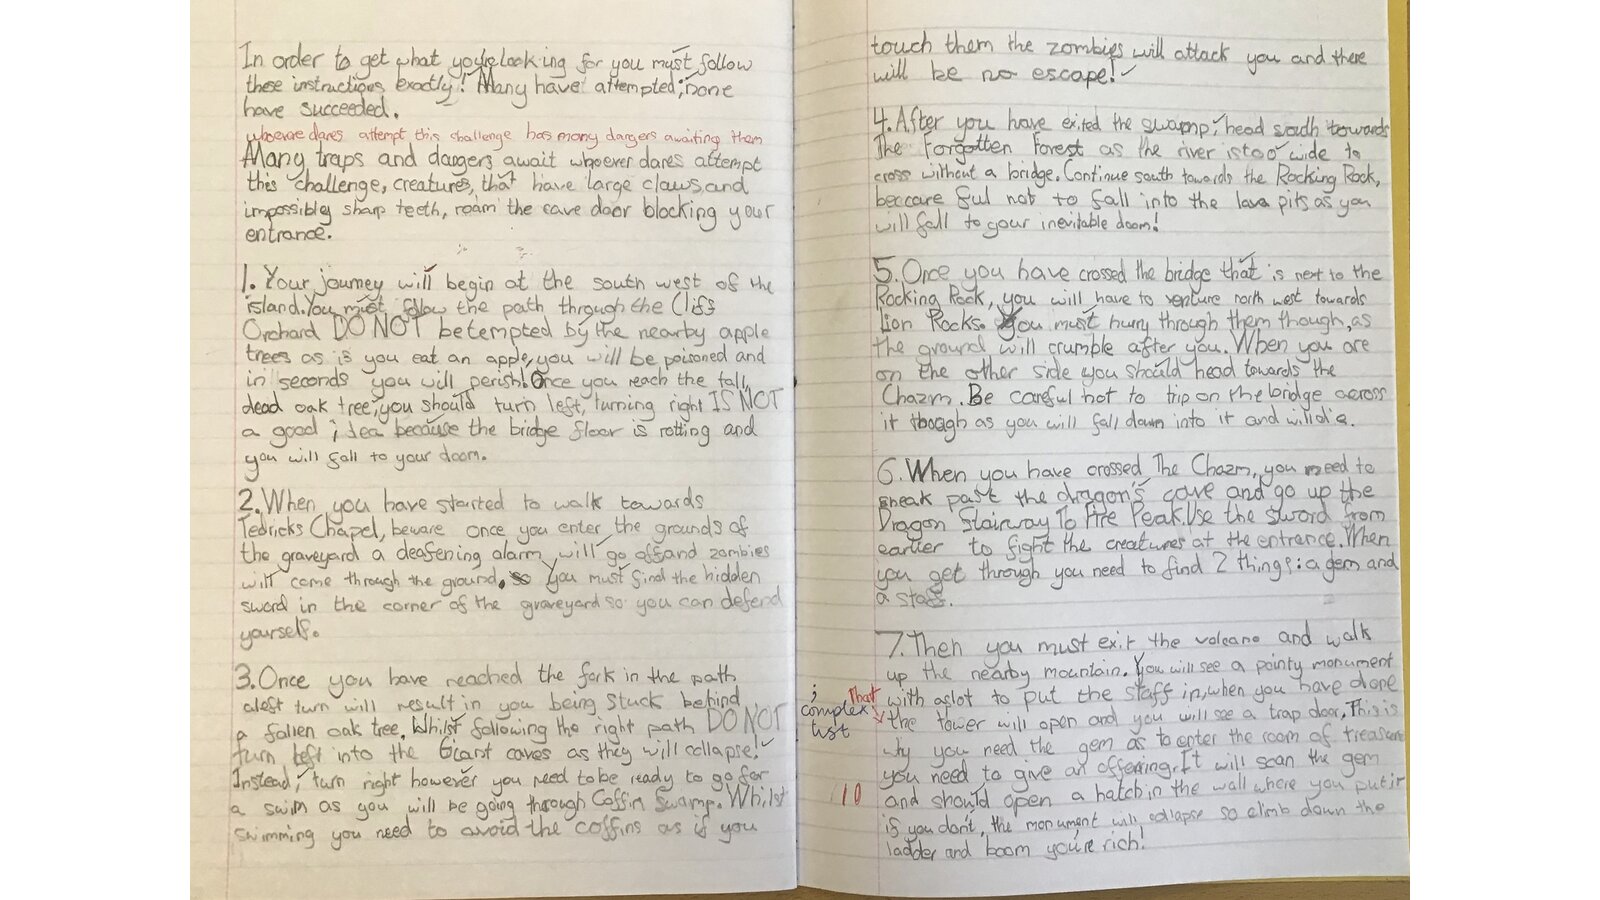 In order to get what you're looking for you must follow
these instructions exactly! Many have attempted; none
have succeeded.
whoever dares attempt this challenge has many dangers awaiting them
Many traps and dangers await whoever dares attempt
this challenge, creatures, that have large claws and
impossibly sharp teeth, roam the cave door blocking your
entrance.
1. Your journey will begin at the south west of the
island. You must follow the path through the Cliff
Orchard DO NOT be tempted by the nearby apple
trees as if you eat an apple, you will be poisoned and
in seconds you will perish! Once you reach the tall,
dead oak tree, you should turn left, turning right IS NOT
a good idea because the bridge floor is rotting and
you will fall to your doom.
2. When you have started to walk towards
Tedricks Chapel, beware once you enter the grounds of
the graveyard a deafening alarm will go off and zombies
will come through the ground. You must find the hidden
sword in the corner of the graveyard so you can defend
yourself.
3. Once you have reached the fork in the path
a left turn will result in you being stuck behind
a fallen oak tree. Whilst following the right path DO NOT
turn left into the Giant caves as they will collapse!
Instead, turn right however you need to be ready to go for
a swim as you will be going through Coffin Swamp. Whilst
swimming you need to avoid the coffins as if you
touch them the zombies will attack you and there
will be no escape!
4. After you have exited the swamp, head south towards
The Forgotten Forest as the river is too wide to
cross without a bridge. Continue south towards the Rocking Rock,
beccare ful not to fall into the lava pits as you
will fall to your inevitable doom!
5. Once you have crossed the bridge that is next to the
Rocking Rock, you will have to venture north west towards
Lion Rocks. You must hurry through them though, as
the ground will crumble after you. When you are
on the other side you should head towards the
Chazm. Be careful not to trip on the bridge across
it though as you will fall down into it and will die.
6. When you have crossed The Chazm, you need to
sneak past the dragon's cave and go up the
Dragon Stairway To Fire Peak. Use the sword from
earlier to fight the creatures at the entrance. When
you get through you need to find 2 things: a gem and
a staff.
7. Then you must exit the volcano and walk
up the nearby mountain. You will see a pointy monument
; That
with a slot to put the staff in, when you have done
complex
the tower will open and you will see a trap door. This is
list
why you need the gem as to enter the room of treasure
you need to give an offering. It will scan the gem
10
and should open a hatch in the wall where you put it
if you don't, the monument will collapse so climb down the
ladder and boom you're rich!